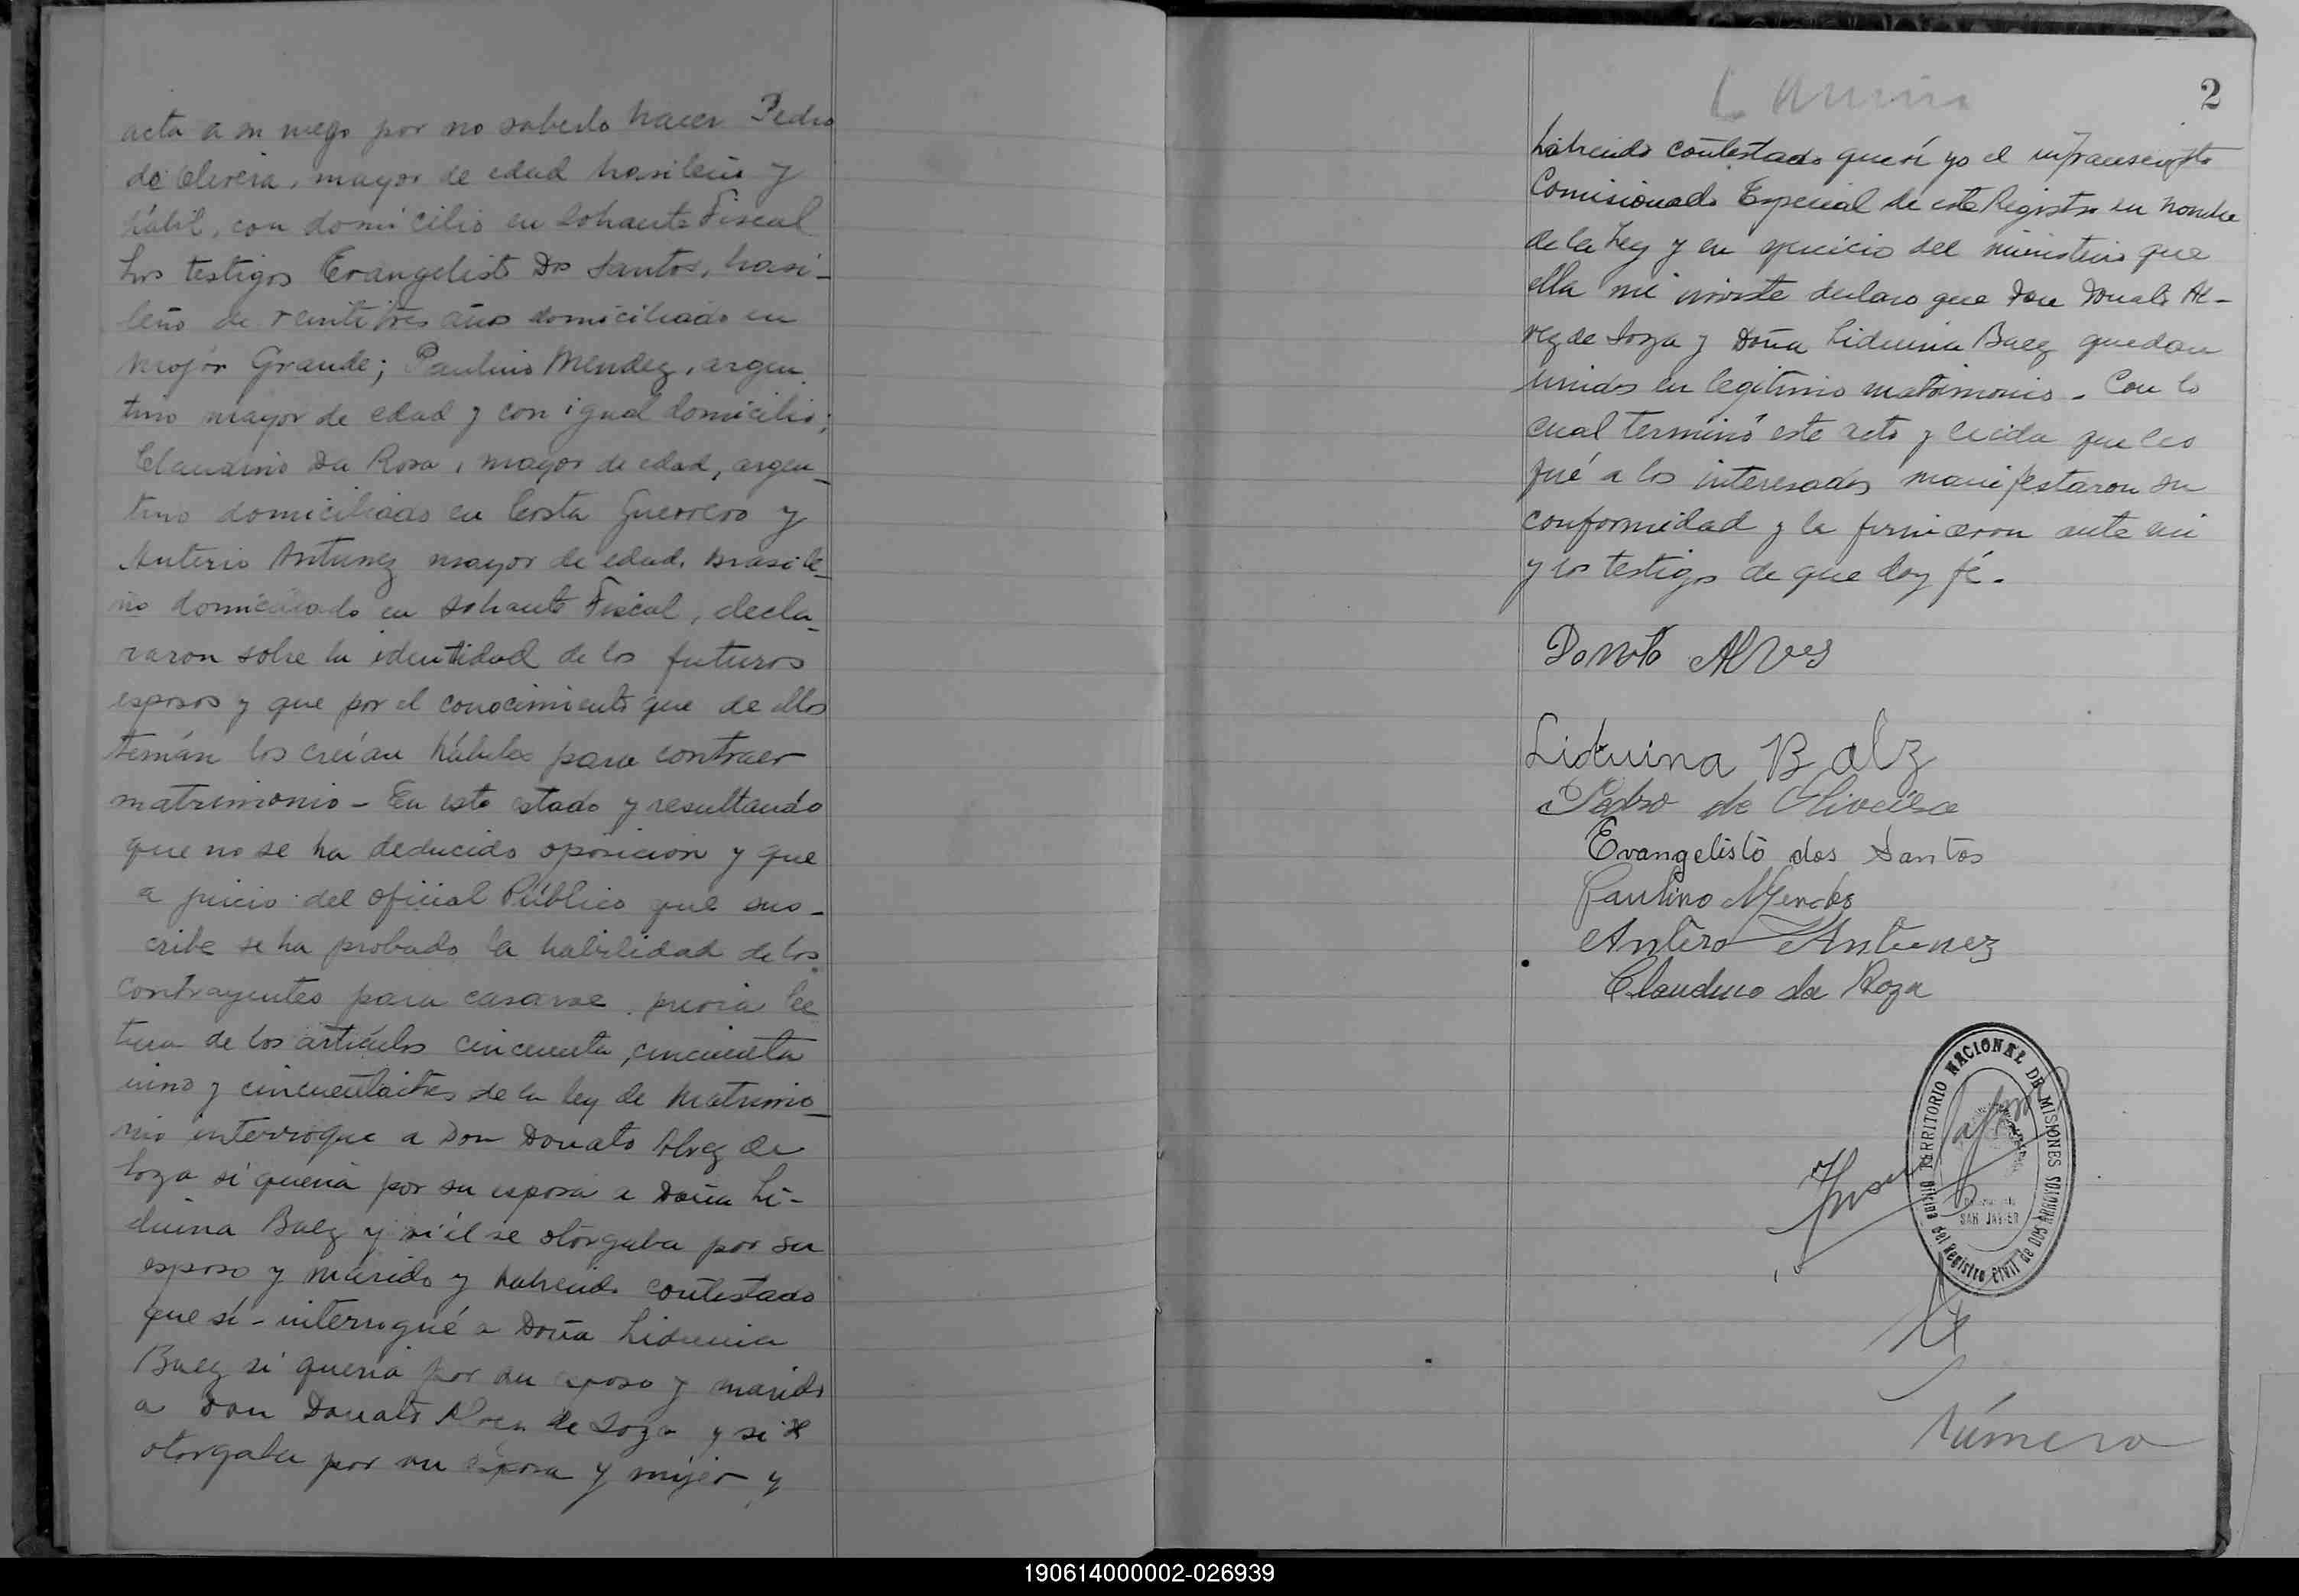 acta a su ruego por no saberlo hacer Pedro
de Olivera, mayor de edad brasileño y
hábil, con domicilio en Sobrante Fiscal
Los testigos Evangelisto Dos Santos, brasi-
leño de veintitres años domiciliado en
Mojón Grande; Paulino Mendez, argen
tino mayor de edad y con igual domicilio;
Claudino Da Rosa, mayor de edad, argen-
tino domiciliado en Costa Guerrero y
Anterio Antunez mayor de edad, brasile-
ño domiciliado en Sobrante Fiscal, decla-
raron sobre la identidad de los futuros
esposos y que por el conocimiento que de ellos
tenían los creían hábiles para contraer
matrimonio - En este estado y resultando
que no se ha deducido oposicion y que
a juicio del oficial Público que sus-
cribe se ha probado la habilidad de los
contrayentes para casarse previa lec
tura de los artículos cincuenta, cincuenta
uno y cincuentaitres de la ley de Matrimo-
nio interrogue a Don Donato Alvez de
Soza si queria por su esposa a Doña Li-
duina Baez y si él se otorgaba por su
esposo y marido y habiendo contestado
que sí - interrogué a Doña Liduina
Baez si queria por su esposo y marido
a Don Donato Alvez de Soza y si se
otorgaba por su esposa y mujer y
2
habiendo contestado que sí yo el infrascripto
Comisionado Especial de este Registro en nombre
de la Ley y en ejercicio del ministerio que
ella me inviste declaro que Don Donato Al-
vez de Soza y Doña Liduina Baez quedan
unidos en legitimo matrimonio. Con lo
cual terminó este acto y leida que les
fué a los interesados manifestaron su
conformidad y la firmaron ante mi
y los testigos de que doy fé.
Donato Alves
Liduina Baez
Pedro de Oliveira
Evangelisto dos Santos
Paulino Mendes
Antero Antunez
Claudino da Roza
TERRITORIO NACIONAL DE MISIONES
SAN JAVIER
Oficina del Registro Civil de DOS ARROYOS
Número
190614000002-026939